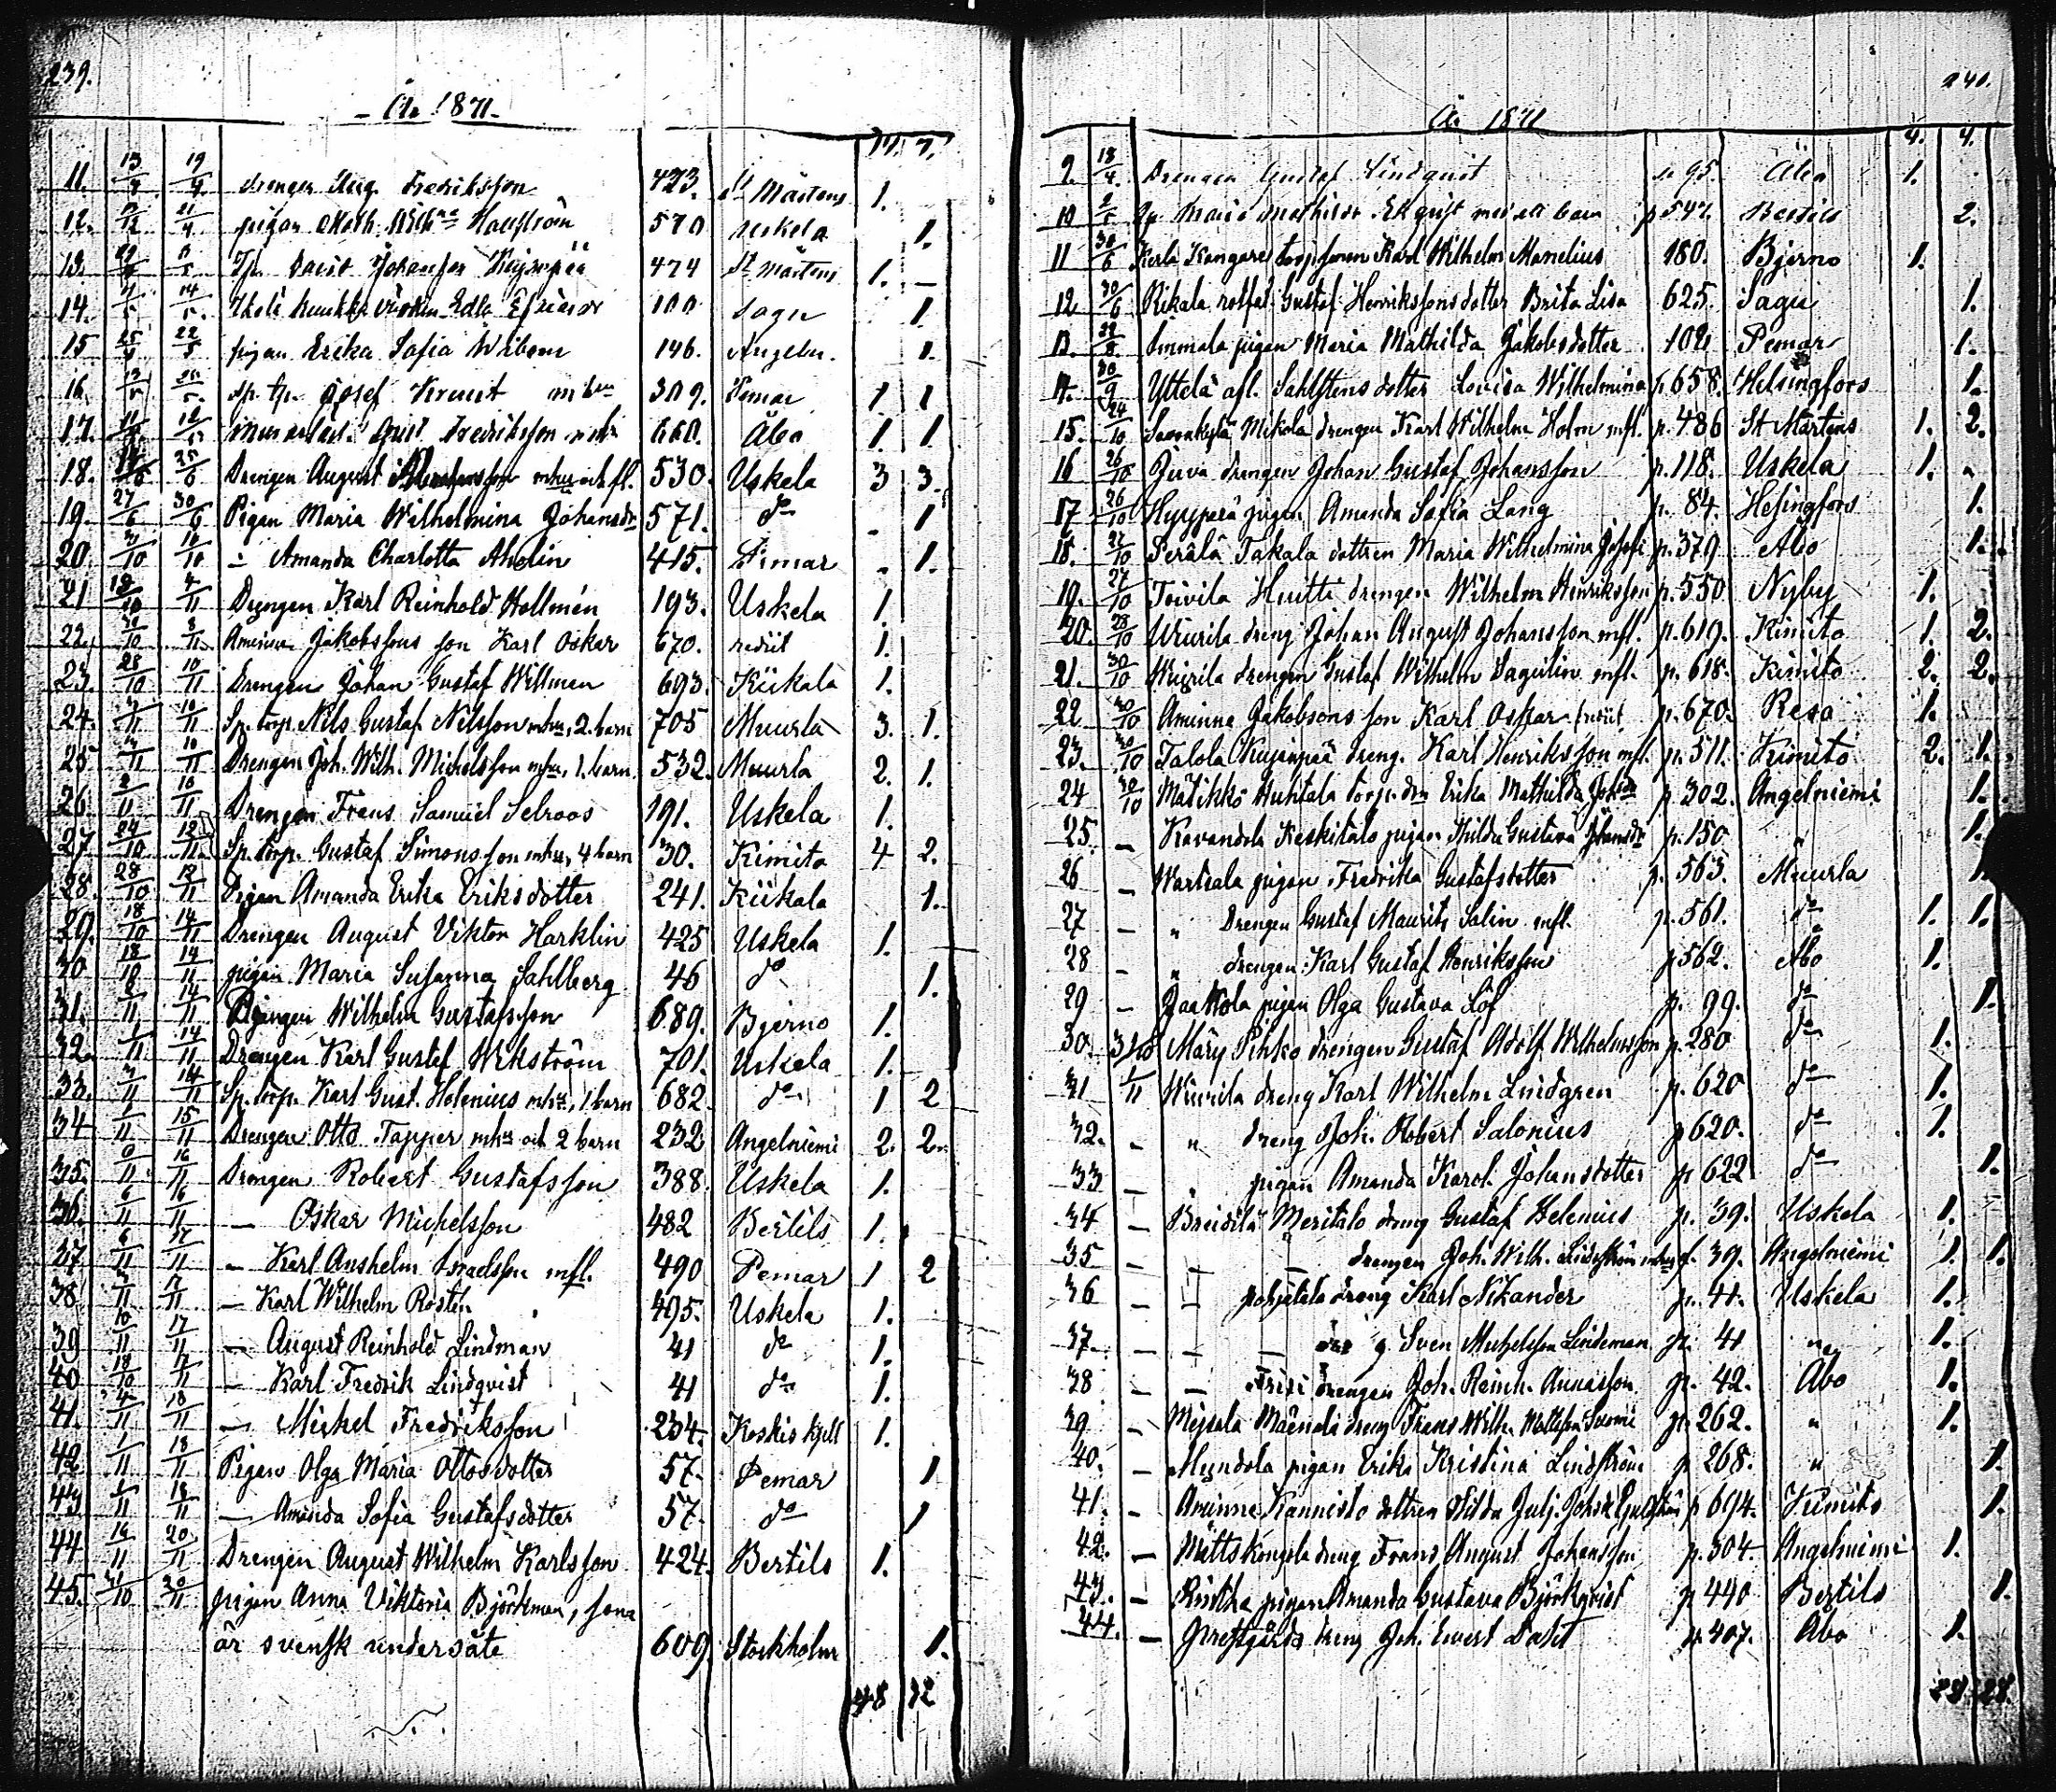 239.
År 1871.
17. 7.
11. 13/4 19/4 drengen Aug. Fredriksson 423. St Mårtens 1.
12. pigan Math. Hallström 570 Uskela 1.
13. Tp. David Johansson Kujanpää 474 St Mårtens 1. –
14. 14/5 Edla 100 Sagu 1.
15 25/4 22/5 pigan Erika Sofia Wiborn 146. Angeln. 1.
16. 13/5 sp. tp. Josef 309. Pemar 1 1
17. Fredriksson 660. Åbo 1. 1
18. 25/6 Drengen August mhu och fl. 530. Uskela 3 3.
19. 27/6 30/6 Pigan Maria Wilhelmina Johansdr 571. do 1
20. 3/10 10/10 – Amanda Charlotta Aholin 415. Pimar 1.
21 18/10 4/11 Drengen Karl Reinhold Hollmén 193. Uskela 1.
22. 30/10 8/11 Aminne Jakobssons son Karl Oskar 670. rediit 1.
23. 28/10 10/11 Drengen Johan Gustaf Willman 693. Kiikala 1.
24. 10/11 Sp. torp. Nils Gustaf Nilsson mhu, 2. barn 705 Muurla 3. 1.
25 10/11 Drengen Joh. Wilh. Michelsson mhu, 1. barn 532. Muurla 2. 1.
26. 2/11 10/11 Drengen Frans Samuel Selroos 191. Uskela 1.
27. 24/10 12/11 Sp. torp. Gustaf Simonsson mhu, 4 barn 30. Kimito 4 2.
28. 28/10 12/11 Pigan Amanda Erika Eriksdotter 241. Kiikala 1.
29. 18/10 14/11 Drengen August Viktor Harklin 425 Uskela 1.
30 18/10 14/11 pigan Maria Susanna Sahlberg 46 do 1.
31. 2/11 14/11 Drengen Wilhelm Gustafsson 689. Bjerno 1.
32. 1/11 14/11 Drengen Karl Gustaf Wikström 701. Uskela 1.
33. 3/11 14/11 Sp. torp. Karl Gust. Helenius mhu, 1 barn 682. do 1 2
34 1/11 15/11 Drengen Otto Tapper mhu och 2 barn 232 Angelniemi 2. 2.
35. 9/11 16/11 Drengen Robert Gustafsson 388. Uskela 1.
36. 6/11 16/11 – Oskar Michelsson 482 Bertils 1.
37 6/11 17/11 – Karl Anshelm Israelsson mfl. 490 Pemar 1 2
38 3/11 17/11 – Karl Wilhelm Rosten 495. Uskela 1.
39 10/11 17/11 – August Reinhold Lindman 41 do 1.
40 18/10 17/11 – Karl Fredrik Lindqvist 41 do 1.
41. 4/11 18/11 – Mickel Fredriksson 234. Koskis kpll 1.
42 1/11 18/11 Pigan Olga Maria Ottosdotter 57. Pemar 1
43 1/11 18/11 – Amanda Sofia Gustafsdotter 57. do 1
44 14/11 20/11 Drengen August Wilhelm Karlsson 424. Bertils 1.
45. 31/10 30/11 pigan Anna Viktoria Björkman, som
är svensk undersåte 609 Stockholm 1.
48 32
240.
År 1871
4. 4.
9. 18/4. Drengen Gustaf Lindqvist p. 95. Åbo 1.
10 2/5 Tp. Maria Mathilda Ekqvist med ett barn p. 547. Bertils 2.
11 30/6 Kerla Kangare torpsonen Karl Wilhelm Manelius 180. Bjerno 1.
12 30/6 Rikala rotfat. Gustaf Henrikssons dotter Brita Lisa 625. Sagu 1.
13. 22/8 Immala pigan Maria Mathilda Jakobsdotter 102 Pemar 1.
14. 30/9 Yttelä afl. Sahlstens dotter Lovisa Wilhelmina p. 658. Helsingfors 1.
15. 24/10 Saarankylä Mikola drengen Karl Wilhelm Holm mfl. p. 486 St Mårtens 1. 2.
16 26/10 Juva drengen Johan Gustaf Johansson p. 118. Uskela 1.
17 26/10 Hyyperä pigan Amanda Sofia Lang p. 84. Helsingfors 1.
18. 22/10 Perälä Takala dottren Maria Wilhelmina p. 379 Åbo 1.
19. 27/10 Toivila Huitti drengen Wilhelm Henriksson p. 550 Nyby 1.
20. 28/10 Wiurila dreng Johan August Johansson mfl. p. 619. Kimito 1. 2.
21. 30/10 Wiurila drengen Gustaf Wilhelm Dagulin mfl. p. 618. Kimito 2. 2.
22 30/10 Aminne Jakobssons son Karl Oskar p. 670. Reso 1.
23. 30/10 Talola Kujanpää dreng. Karl Henriksson mfl. p. 511. Kimito 2. 1.
24 30/10 Mätikkö Huhtala torp. drn Erika Mathilda p. 302. Angelniemi 1.
25. – Kavandola Keskitalo pigan Hilda Gustava Johansdr p. 150 " 1.
26 – Wartsala pigan Fredrika Gustafsdotter p. 563. Muurla 1.
27 – " Drengen Gustaf Maurits Salin mfl. p. 561. do 1. 1.
28 – " drengen Karl Gustaf Henriksson p 562. Åbo 1.
29 – Jaakkola pigan Olga Gustava Löf p. 99. do 1.
30. 31/10 Märy Pihko drengen Gustaf Adolf Wilhelmsson p. 280 do 1.
31 1/11 Wiurila dreng Karl Wilhelm Lindgren p. 620 do 1.
32. – " dreng Joh. Robert Salonius p 620. do 1.
33 – " pigan Amanda Karol. Johansdotter p 622 do 1.
34 – Breidilä Meritalo dreng Gustaf Helenius p. 39. Uskela 1.
35 – – – drengen Joh. Wilh. Lindström p. 39. Angelniemi 1. 1.
36 – – pohjatalo dreng Karl Nikander p. 41. Uskela 1.
37 – – – Sven Michelsson Lindeman p. 41 " 1.
38 – – Frisi drengen Joh. Reinh. Annasson p. 42. Åbo 1.
39 – Mejsala Mäenalä dreng Frans Wilh. Suomi p. 262. " 1.
40. – Myndola pigan Erika Kristina Lindström p 268. " 1.
41. – Aminne Kannisto dottren Hilda Julj. p 694. Kimito 1.
42. – dreng Frans August Johansson p. 304. Angelniemi 1.
43. – pigan Amanda Gustava Björkqvist p 440 Bertils 1.
44. – Prestgårds dreng Joh. Evert p. 407. Åbo 1.
28. 28.